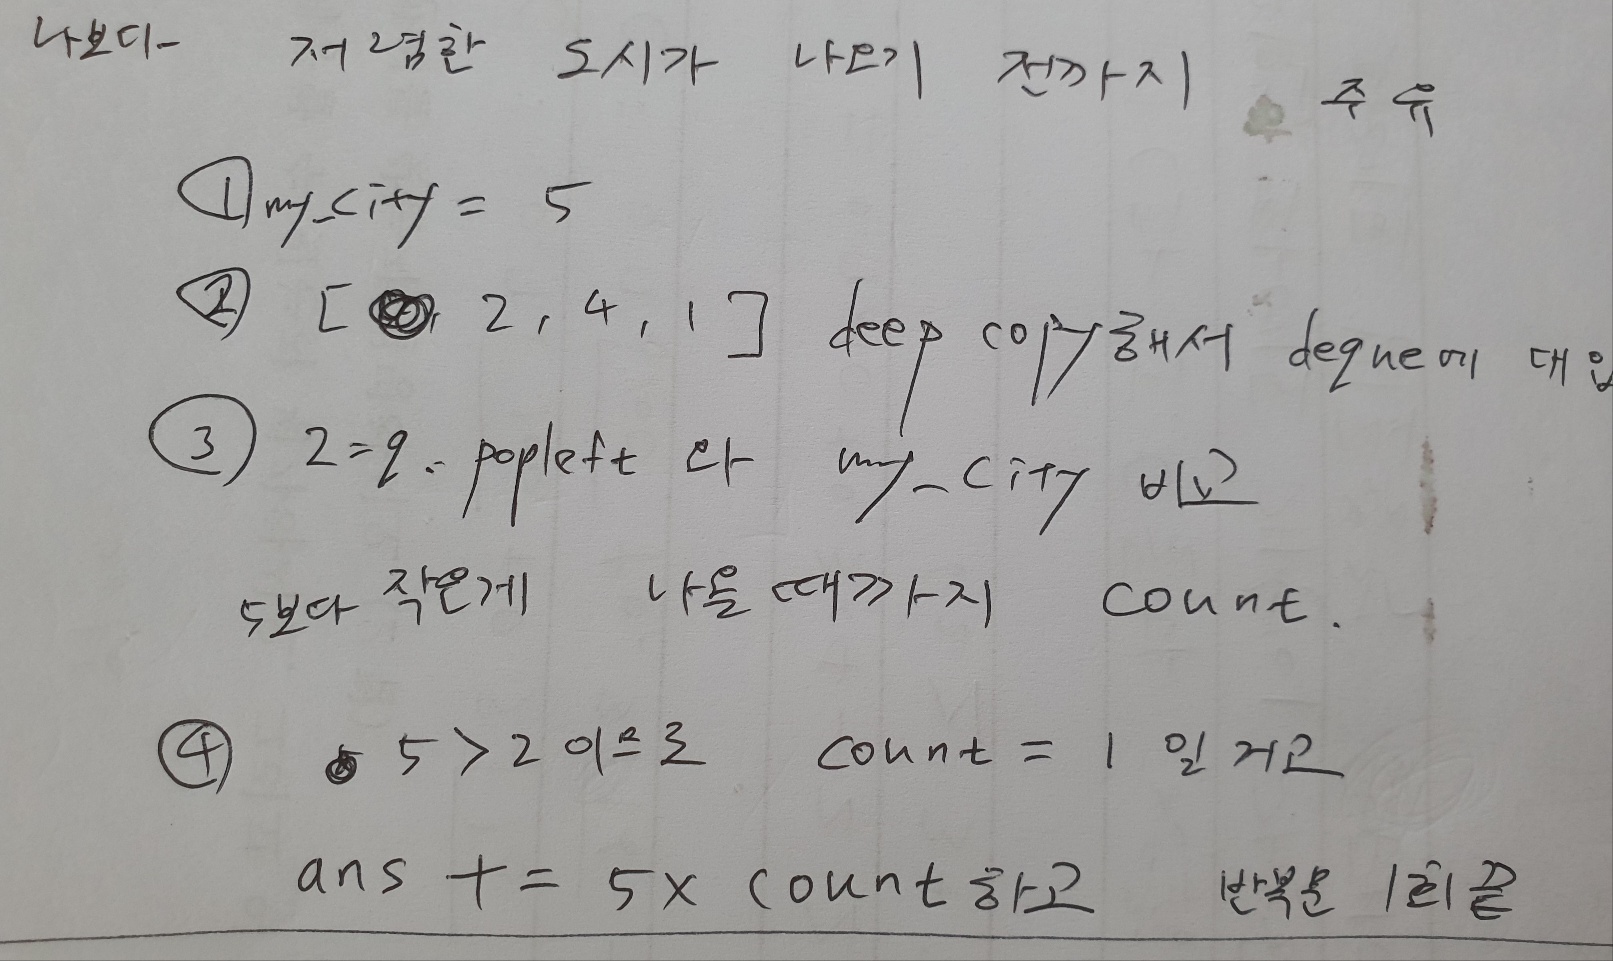 나보다 저렴한 도시가 나오기 전까지 주유
① my_city = 5
② [ 2, 4, 1 ] deep copy해서 deque에 대입
③ 2 = q. popleft 와 my_city 비교
5보다 작은게 나올 때까지 count.
④ 5 > 2 이으로 count = 1 일 거고
ans += 5 x count 하고 반복문 1회 끝